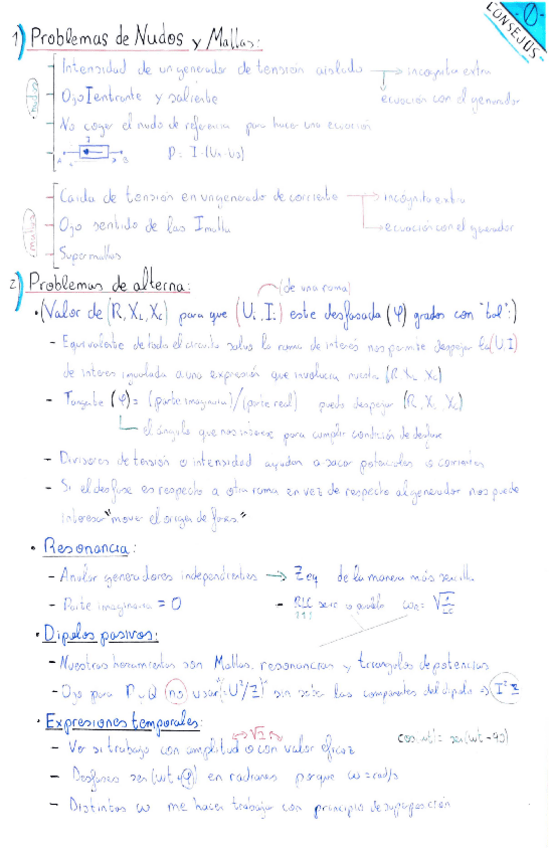 -0-
CONSEJOS
1) Problemas de Nudos y Mallas:
nudos
Intensidad de un generador de tensión aislado → incógnita extra
Ojo I entrante y saliente
ecuación con el generador
No coger el nudo de referencia para hacer una ecuación
I
A B P = I·(
mallas
Caida de tension en un generador de corriente → incógnita extra
Ojo sentido de las I malla → ecuación con el generador
Supermallas
2) Problemas de alterna:
(de una rama)
• (Valor de (R, XL, Xc) para que (U, I) este desfasada (φ) grados con "tal":)
- Equivalente de todo el circuito salvo la rama de interés nos permite despejar la (U, I)
de interes igualada a una expresión que involucra nuestra (R, XL, Xc)
- Tangente (φ) = (parte imaginaria)/(parte real) puedo despejar (R, XL, Xc)
el ángulo que nos interese para cumplir condición de desfase
- Divisores de tensión o intensidad ayudan a sacar potenciales o corrientes
- Si el desfase es respecto a otra rama en vez de respecto al generador nos puede
interesar "mover el origen de fases."
• Resonancia:
- Anular generadores independientes → Zeq de la manera más sencilla
- Parte imaginaria = 0 - RLC serie o paralelo ω₀ = √1/LC
• Dipolos pasivos:
- Nuestras herramientas son Mallas, resonancias y triangulos de potencias
- Ojo para P y Q (no) usar "U²/Z" sin saber las componentes del dipolo → I² Z
• Expresiones temporales:
√2
- Ver si trabajo con amplitud o con valor eficaz cos(ωt) = sen(ωt+90)
- Desfases sen(ωt+φ) en radianes porque ω = rad/s
- Distintos ω me hacen trabajar con principio de superposición